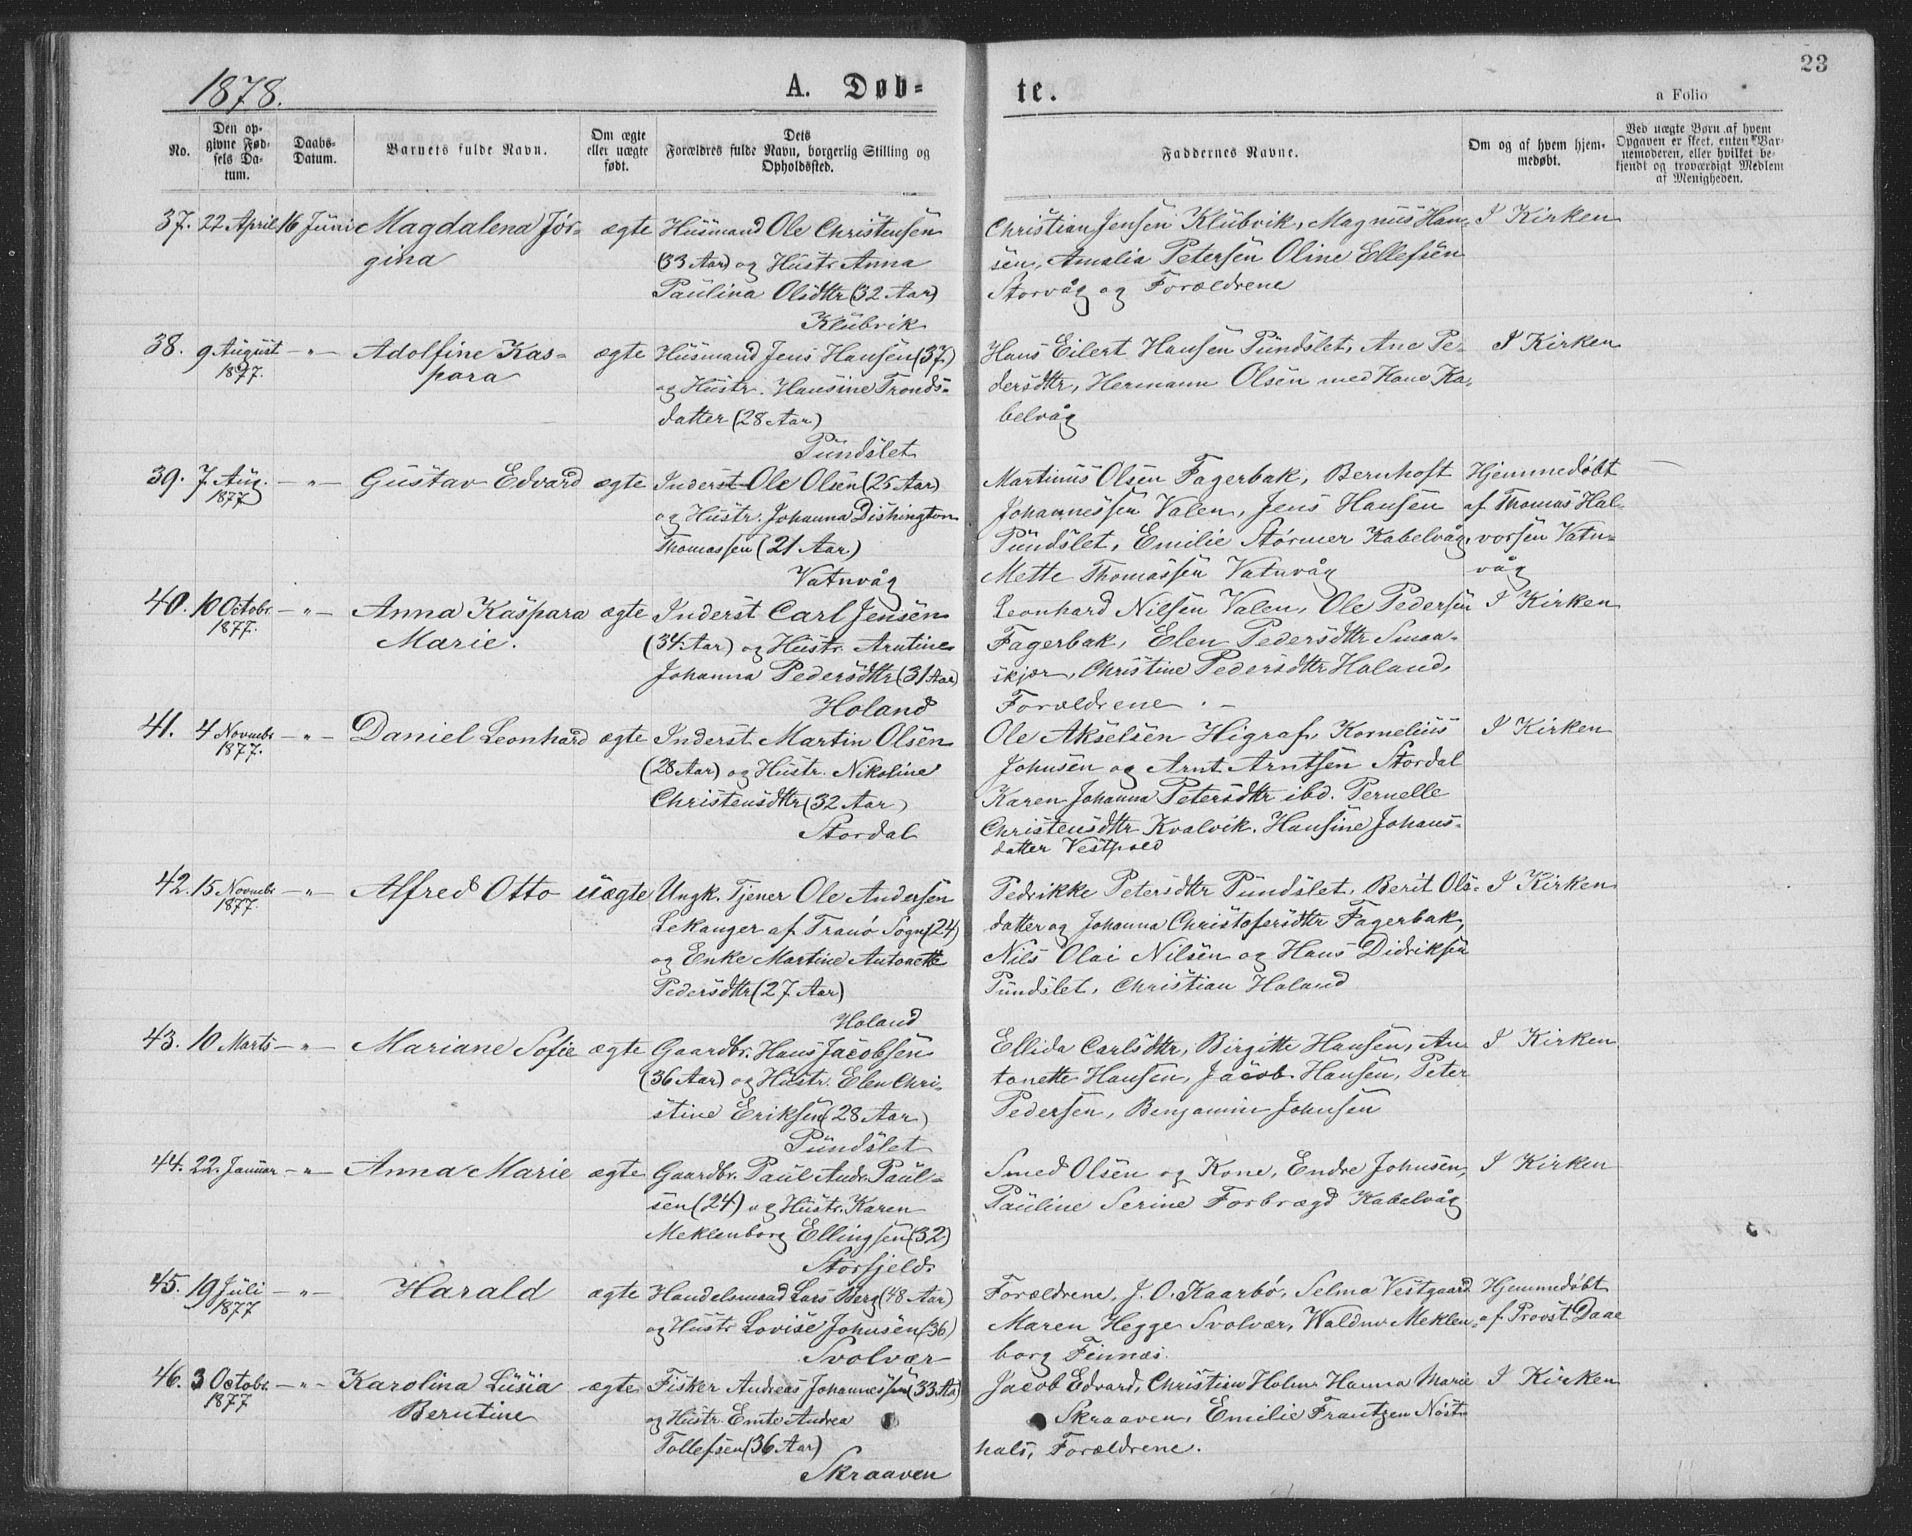 23
1878.
A. Døb=
te.
a Folio
No.
Den op-
givne Fød-
sels Da-
tum.
Daabs-
Datum.
Barnets fulde Navn.
Om ægte
eller uægte
født.
Dets
Forældres fulde Navn, borgerlig Stilling og
Opholdssted.
Faddernes Navne.
Om og af hvem hjem-
medøbt.
Ved uægte Børn af hvem
Opgaven er skeet, enten Bar-
nemoderen, eller hvilket be-
kjendt og troværdigt Medlem
af Menigheden.
37. 22 April 16 Juni Magdalena Jør- ægte Husmand Ole Christensen Christian Jensen Klubvik, Magnus Han- I Kirken
gina (33 Aar) og Hustr Anna sen, Amalia Petersen Oline Ellefsen
Paulina Olsdttr (32 Aar) Storvåg og Forældrene
Klubvik
38. 9 August - " - Adolfine Kas- ægte Husmand Jens Hansen (37) Hans Eilert Hansen Pundslet, Ane Pe- I Kirken
1877. para og Hustr. Hansine Tronds- dersdttr, Hermann Olsen med Kone Ka-
datter (28 Aar) belvåg
Pundslet
39. 7 Aug. - " - Gustav Edvard ægte Inderst Ole Olsen (25 Aar) Martinus Olsen Fagerbak, Bernhoft Hjemmedøbt
1877 og Hustr. Johanna Dishington Johannessen Valen, Jens Hansen af Thomas Hal-
Thomassen (21 Aar) Pundslet, Emilie Størmer Kabelvåg, vorsen Vatn-
Vatnvåg Mette Thomassen Vatnvåg våg
40. 10 Octobr - " - Anna Kaspara ægte Inderst Carl Jensen Leonhard Nilsen Valen, Ole Pedersen I Kirken
1877. Marie. (34 Aar) og Hustr. Arntine Fagerbak, Elen Pedersdttr Smaa-
Johanna Pedersdttr (31 Aar) skjær, Christine Pedersdttr Holand,
Holand Forældrene . -
41. 4 Novmbr - " - Daniel Leonhard ægte Inderst Martin Olsen Ole Akselsen Higraf, Kornelius I Kirken
1877. (28 Aar) og Hustr. Nikoline Johnsen og Arnt Arntsen Stordal
Christensdttr (32 Aar) Karen Johanna Petersdttr ibd. Pernelle
Stordal Christensdttr Kvalvik. Hansine Johans-
datter Vestpold
42. 15 Novmbr - " - Alfred Otto uægte Ungk. Tjener Ole Andersen Pedrikke Petersdttr Pundslet, Berit Ols- I Kirken
1877. Lekanger af Tranø Sogn (24) datter og Johanna Christofersdttr Fagerbak,
og Enke Martine Antonette Nils Olai Nilsen og Hans Didriksen
Pedersdttr (27 Aar) Pundslet, Christian Holand
Holand
43. 10 Marts - " - Mariane Sofie ægte Gaardbr. Hans Jacobsen Ellida Carlsdttr, Birgitte Hansen, An I Kirken
(36 Aar) og Hustr. Elen Chri- tonette Hansen, Jacob Hansen, Peter
stine Eriksen (28 Aar) Pedersen, Benjamin Johnsen
Pundslet
44. 22. Januar - " - Anna Marie ægte Gaardbr. Paul Andr. Paul- Smed Olsen og Kone, Endre Johnsen, I Kirken
sen (24) og Hustr. Karen Pauline Serine Forbrægd Kabelvåg
Meklenborg Ellingsen (32)
Storfjeld.
45. 19 Juli - " - Harald ægte Handelsmand Lars Berg (48 Aar) Forældrene, J. O. Kaarbø, Selma Vestgaard Hjemmedøbt
1877 og Hustr Lovise Johnsen (36) Maren Hegge Svolvær, Waldm Meklen- af Provst Daae
Svolvær borg Finnæs.
46. 3 Octobr. - " - Karolina Lusia ægte Fisker Andreas Johannessen (33 Aar) Jacob Edvard, Christian Holm Hanna Marie I Kirken
1877 Berntine og Hustr. Emte Andrea Skraaven, Emilie Frantzen Nøstn
Tollefsen (36 Aar) hals, Forældrene.
Skraaven